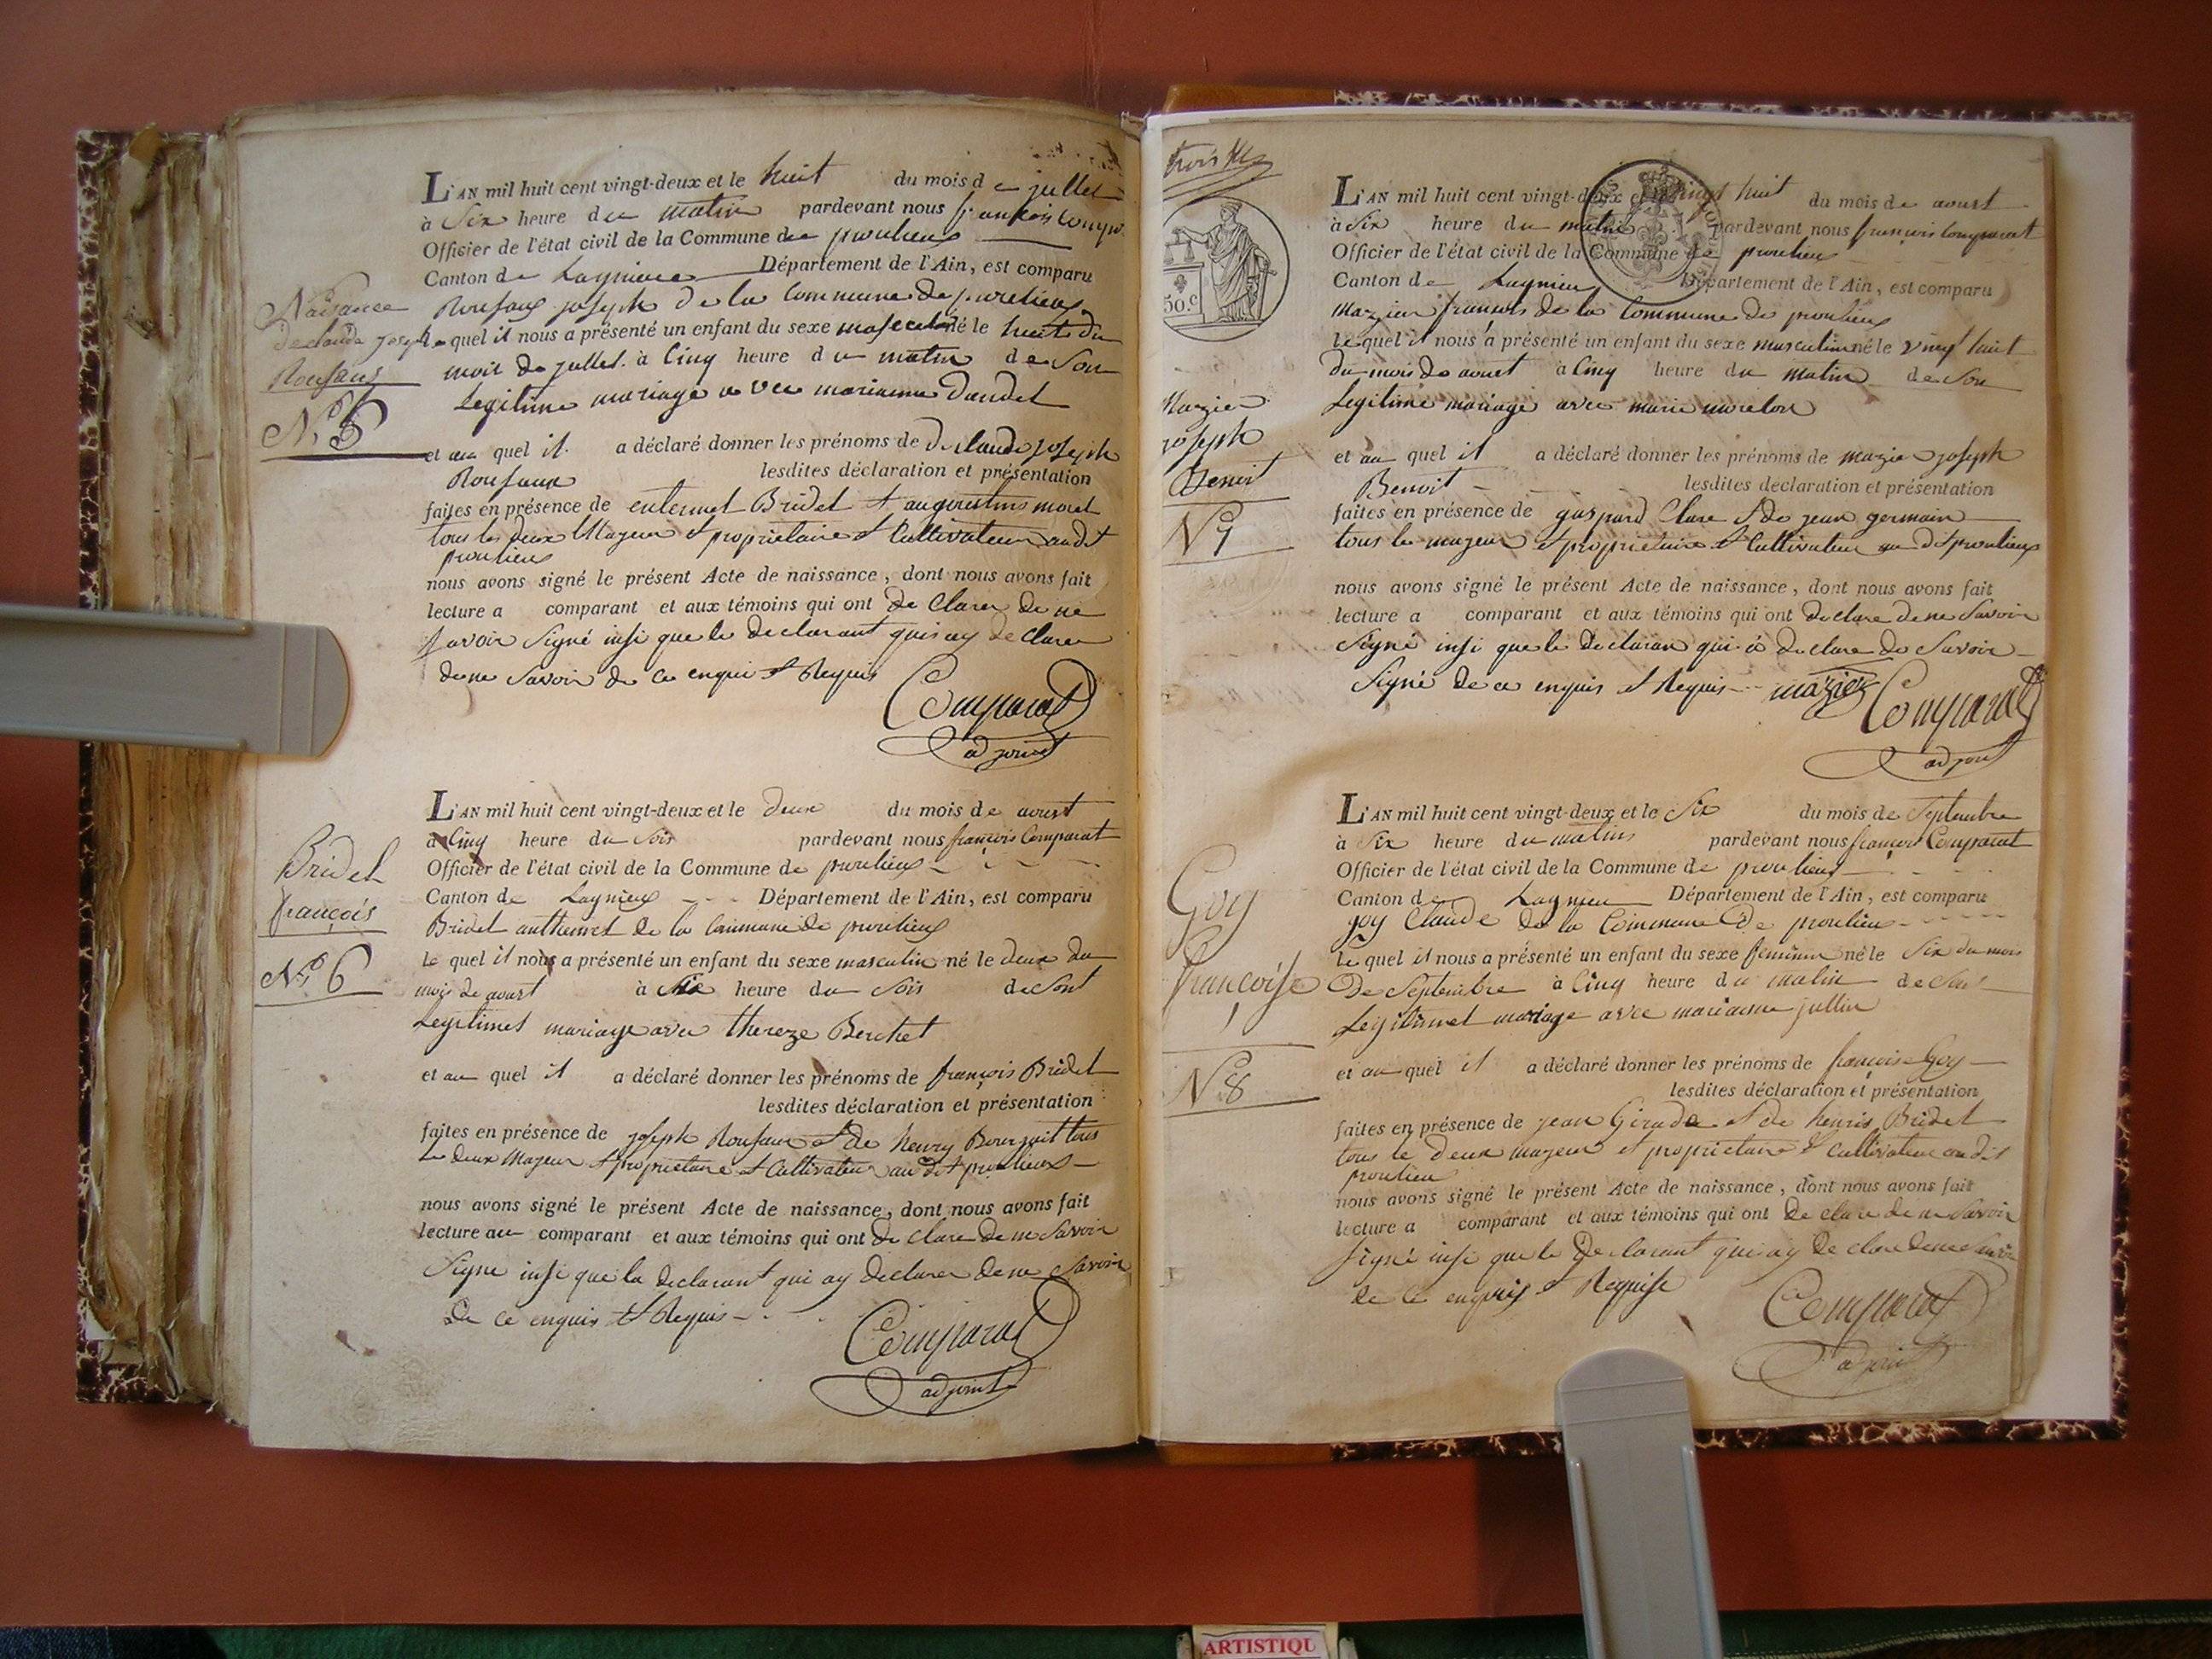 L'AN mil huit cent vingt-deux et le huit du mois de jullet
à Six heure du matin pardevant nous françois Compa
Officier de l'état civil de la Commune de proulieux
Canton de Lagnieu Département de l'Ain, est comparu
Roufaux joseph de la Commune de proulieux
quel il nous a présenté un enfant du sexe masculin né le huit du
mois de jullet à Cinq heure du matin de Son
Legitime mariage avec marianne Daudet
et au quel il a déclaré donner les prénoms de declaude joseph
Roufaux lesdites déclaration et présentation
faites en présence de Bridet et morel
tous les deux Majeur et proprietaire et Cultivateur audit
proulieux
nous avons signé le présent Acte de naissance, dont nous avons fait
lecture a comparant et aux témoins qui ont de Clarer de ne
Savoir Signé insi que le declarant qui ay de Clarer
de ne Savoir de ce enquis et Requis
Comparat
adjoint
Naissance
declaude joseph
Roufaux
N° 5
L'AN mil huit cent vingt-deux et le deux du mois de aoust
à Cinq heure du Soir pardevant nous françois Comparat
Officier de l'état civil de la Commune de proulieux
Canton de Lagnieux Département de l'Ain, est comparu
Bridet anthemet de la Commune de proulieux
le quel il nous a présenté un enfant du sexe masculin né le deux du
mois de aoust à heure du Soir de Sont
Legitimet mariage avec thereze Berchet
et au quel il a déclaré donner les prénoms de françois Bridet
lesdites déclaration et présentation
faites en présence de joseph Roufaux et de henry tous
Le deux Majeur et proprietaire et Cultivateur au dit proulieux
nous avons signé le présent Acte de naissance, dont nous avons fait
lecture au comparant et aux témoins qui ont de Clare de ne Savoir
Signe insi que la declarant qui ay declarer de ne Savoir
De ce enquis et Requis
Comparat
adjoint
Bridet
françois
N° 6
trois
50.c
L'AN mil huit cent vingt-deux et vingt huit du mois de aoust
à Six heure du matin pardevant nous françois Comparat
Officier de l'état civil de la Commune de proulieux
Canton de Lagnieu Département de l'Ain, est comparu
Mazier françois de la Commune de proulieux
Le quel il nous a présenté un enfant du sexe masculin né le vingt huit
du mois de aoust à Cinq heure du matin de Son
Legitime mariage avec marie morelon
et au quel il a déclaré donner les prénoms de mazier joseph
Benoit lesdites declaration et présentation
faites en présence de gaspard Clare et de jean germain
tous le mazeur et proprietaire et Cultivateur au dit proulieux
nous avons signé le présent Acte de naissance, dont nous avons fait
lecture a comparant et aux témoins qui ont de clare de ne Savoir
Signé insi que le declaran qui a de clare de Savoir
Signé de ce enquis et Requis mazier Comparat
adjoint
Mazier
joseph
Benoit
N° 7
L'AN mil huit cent vingt-deux et le Six du mois de Septembre
à Six heure du matin pardevant nous françois Comparat
Officier de l'état civil de la Commune de proulieux
Canton de Lagnieu Département de l'Ain, est comparu
goy Claude de la Commune de proulieu
Le quel il nous a présenté un enfant du sexe feminin né le Six du mois
De Septembre à Cinq heure du matin de Son
Legitimet mariage avec marianne jullin
et au quel il a déclaré donner les prénoms de françoise Goy
lesdites déclaration et présentation
faites en présence de jean Girade et de henris Bridet
tous le Deux mazeur et proprietaire et cultivateur au dit
proulieu
nous avons signé le présent Acte de naissance, dont nous avons fait
lecture a comparant et aux témoins qui ont de clare de ne Savoir
Signé insi que le Declarant qui ay De clare de ne Savoir
de ce enquis et Requise
Comparat
adjoint
Goy
françoise
N° 8
ARTISTIQU